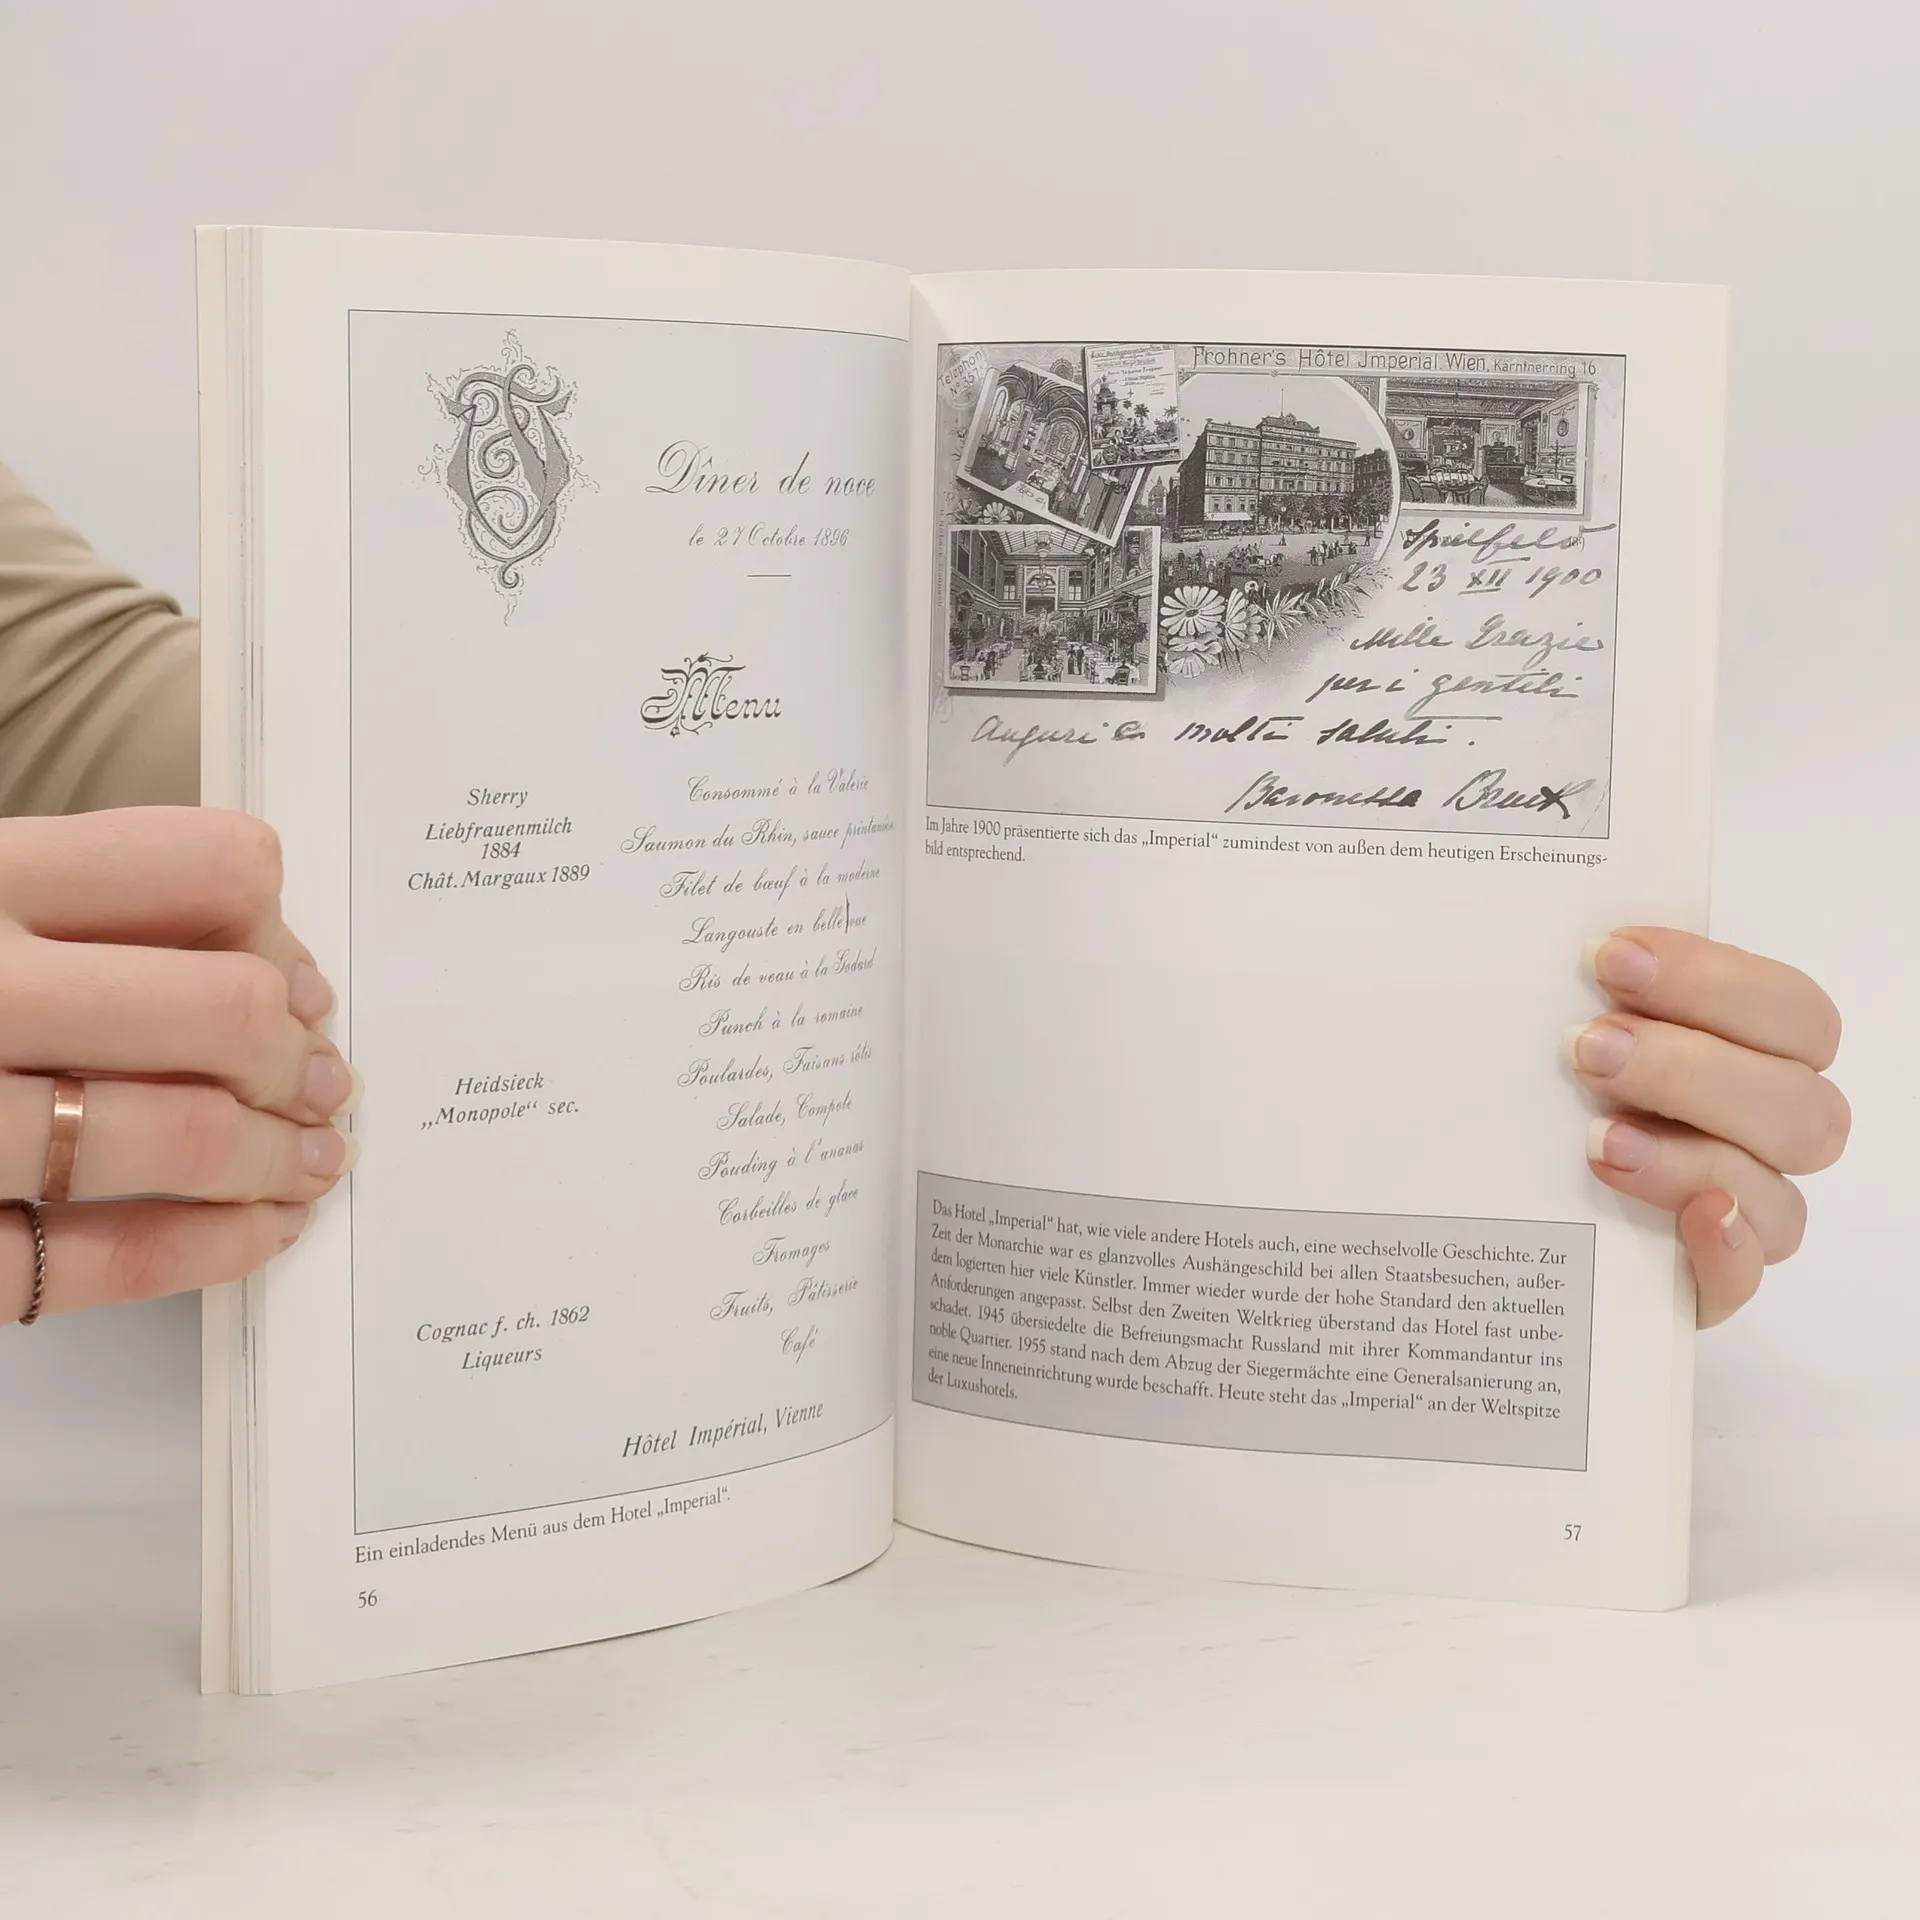 Dîner de noce
le 27 Octobre 1896
Menu
Sherry
Liebfrauenmilch
1884
Chât. Margaux 1889
Heidsieck
„Monopole“ sec.
Cognac f. ch. 1862
Liqueurs
Consommé à la Valerie
Saumon du Rhin, sauce printanière
Filet de bœuf à la moderne
Langouste en bellevue
Ris de veau à la Godard
Punch à la romaine
Poulardes, Faisans rôtis
Salade, Compote
Pouding à l'ananas
Corbeilles de glace
Fromages
Fruits, Pâtisserie
Café
Hôtel Impérial, Vienne
Ein einladendes Menü aus dem Hotel „Imperial“.
56
Telephon
No 357
Frohner's Hôtel Jmperial Wien, Kärntnerring 16
Spielfeld
23 XII 1900
Mille Grazie
per i gentili
Auguri e molti saluti.
Baronessa Bruck
Im Jahre 1900 präsentierte sich das „Imperial“ zumindest von außen dem heutigen Erscheinungs-
bild entsprechend.
Das Hotel „Imperial“ hat, wie viele andere Hotels auch, eine wechselvolle Geschichte. Zur
Zeit der Monarchie war es glanzvolles Aushängeschild bei allen Staatsbesuchen, außer-
dem logierten hier viele Künstler. Immer wieder wurde der hohe Standard den aktuellen
Anforderungen angepasst. Selbst den Zweiten Weltkrieg überstand das Hotel fast unbe-
schadet. 1945 übersiedelte die Befreiungsmacht Russland mit ihrer Kommandantur ins
noble Quartier. 1955 stand nach dem Abzug der Siegermächte eine Generalsanierung an,
eine neue Inneneinrichtung wurde beschafft. Heute steht das „Imperial“ an der Weltspitze
der Luxushotels.
57